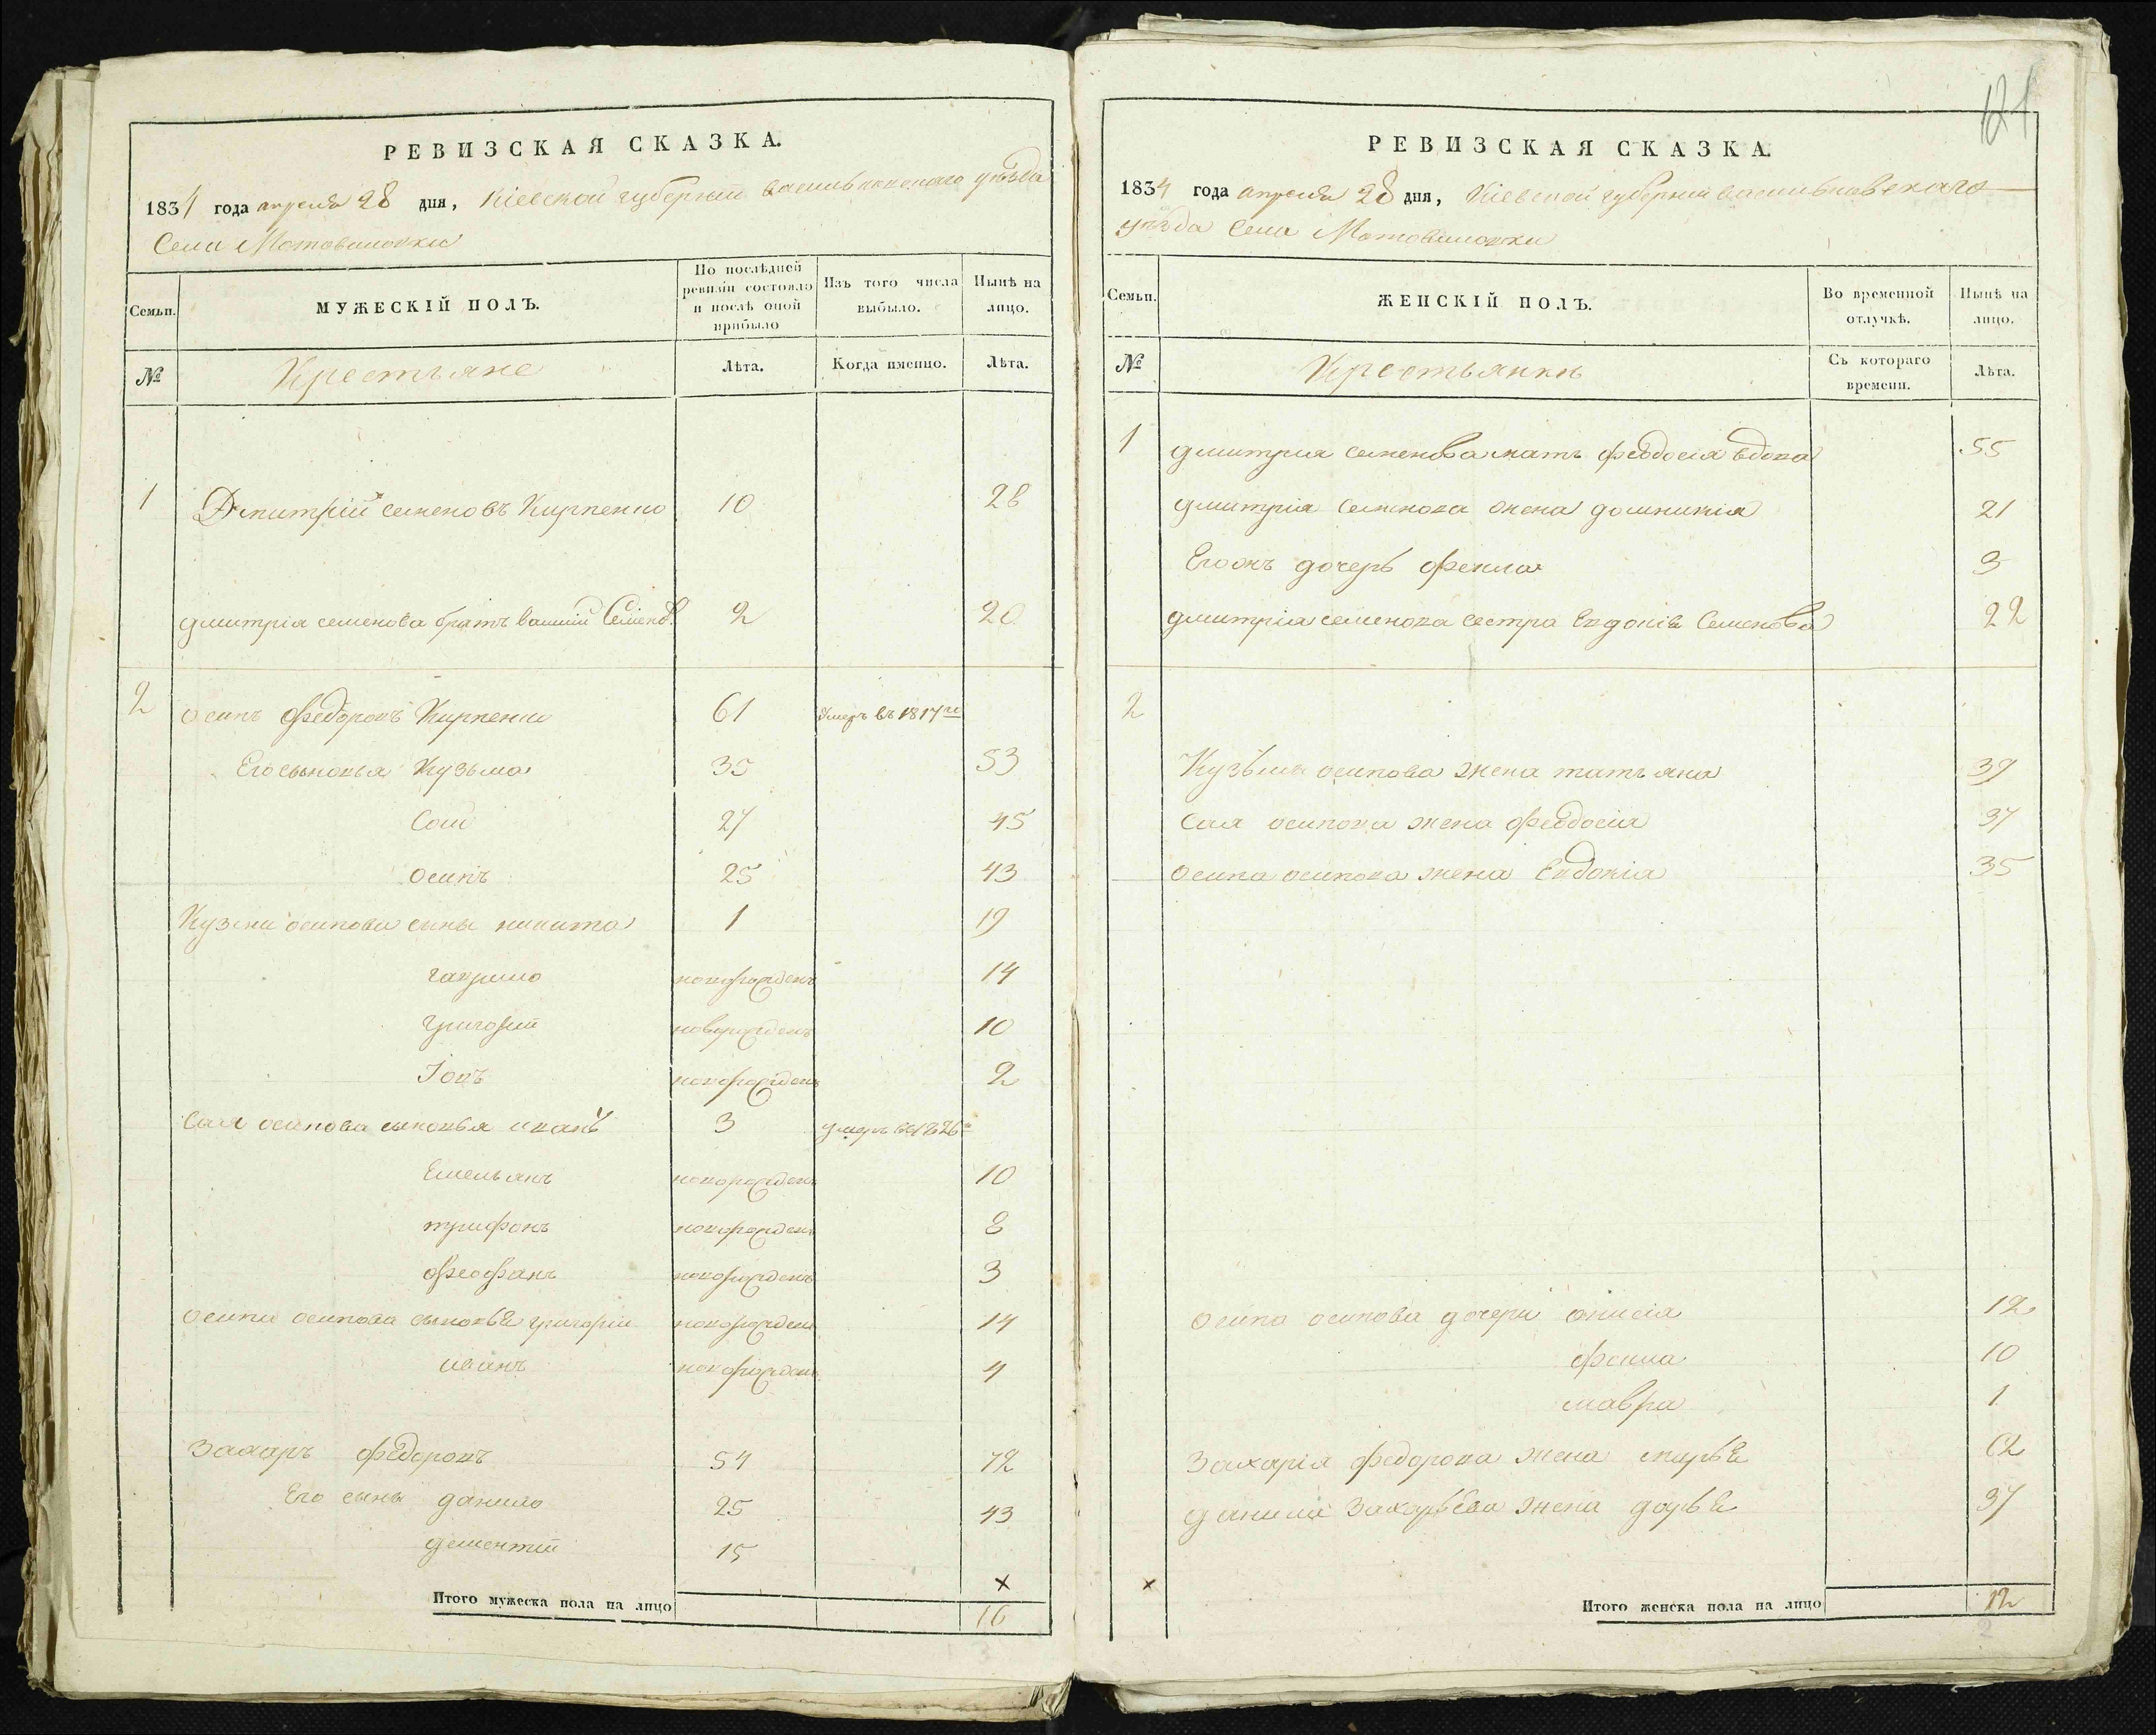 РЕВИЗСКАЯ СКАЗКА.
1834 года апреля 28 дня, Кіевской губерніи Васильковскаго уѣзда
Села Мотовиловки
Семьи.
МУЖЕСКІЙ ПОЛЪ.
По послѣдней ревизіи состояло и послѣ оной прибыло
Изъ того числа выбыло.
Нынѣ на лицо.
№
Крестьяне
Лѣта.
Когда именно.
Лѣта.
1 Дмитрій семеновъ Кирпенко 10 28
дмитрія семенова братъ Семенов. 2 20
2 осипъ Федоровъ Кирпенко 61 Умеръ въ 1817 го
Его сыновья Кузьма 35 53
27 45
осипъ 25 43
Кузми осипова сыны никита 1 19
гаврило новорожденъ 14
григорій новорожденъ 10
Іовъ новорожденъ 2
осипова сыновья иванъ 3 умеръ въ 1826
Емельянъ новорожденъ 10
трифонъ новорожденъ 8
феофанъ новорожденъ 3
осипа осипова сыновье григорій новорожденъ 14
иванъ новорожденъ 4
Захаръ федоровъ 54 72
Его сыны данило 25 43
дементій 15
×
Итого мужеска пола на лицо 16
3
121
РЕВИЗСКАЯ СКАЗКА.
1834 года апреля 28 дня, Кіевской губерніи Васильковскаго
уѣзда Села Мотовиловки
Семьи.
ЖЕНСКІЙ ПОЛЪ.
Во временной отлучкѣ.
Нынѣ на лицо.
№
Крестьянки
Съ котораго времени.
Лѣта.
1 дмитрия семенова мать феодосія вдова 55
дмитрія семенова жена домникія 21
Его жъ дочерь фекла 3
дмитрія семенова сестра Евдокія Семенова 22
2
Кузьмы осипова жена татьяна 39
осипова жена феодосія 37
осипа осипова жена Евдокія 35
осипа осипова дочери анисія 12
фекла 10
мавра 1
Захарія федорова жена 62
данила Захарьева жена дарье 37
×
Итого женска пола на лицо 12
2